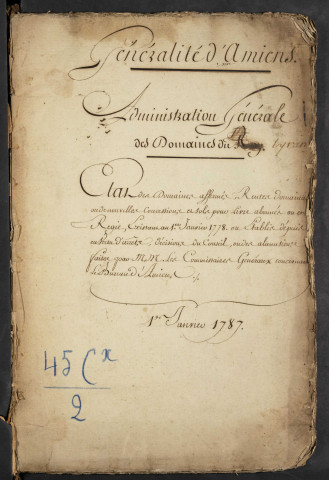 Généralité d'Amiens.
Administration Générale
des Domaines du Roy
Etat des Domaines affermés, Rentes domaniales
ou de nouvelles concessions et sols pour livre abonnés ou en
Regie, Existans au 1er Janvier 1778. ou Etablis depuis
en vertu d'arrêts, décisions du Conseil, ou des alienations
faites par M.M. les Commissaires Généraux concernant
le Bureau d'Amiens.
1er Janvier 1787.
45 Cx
2